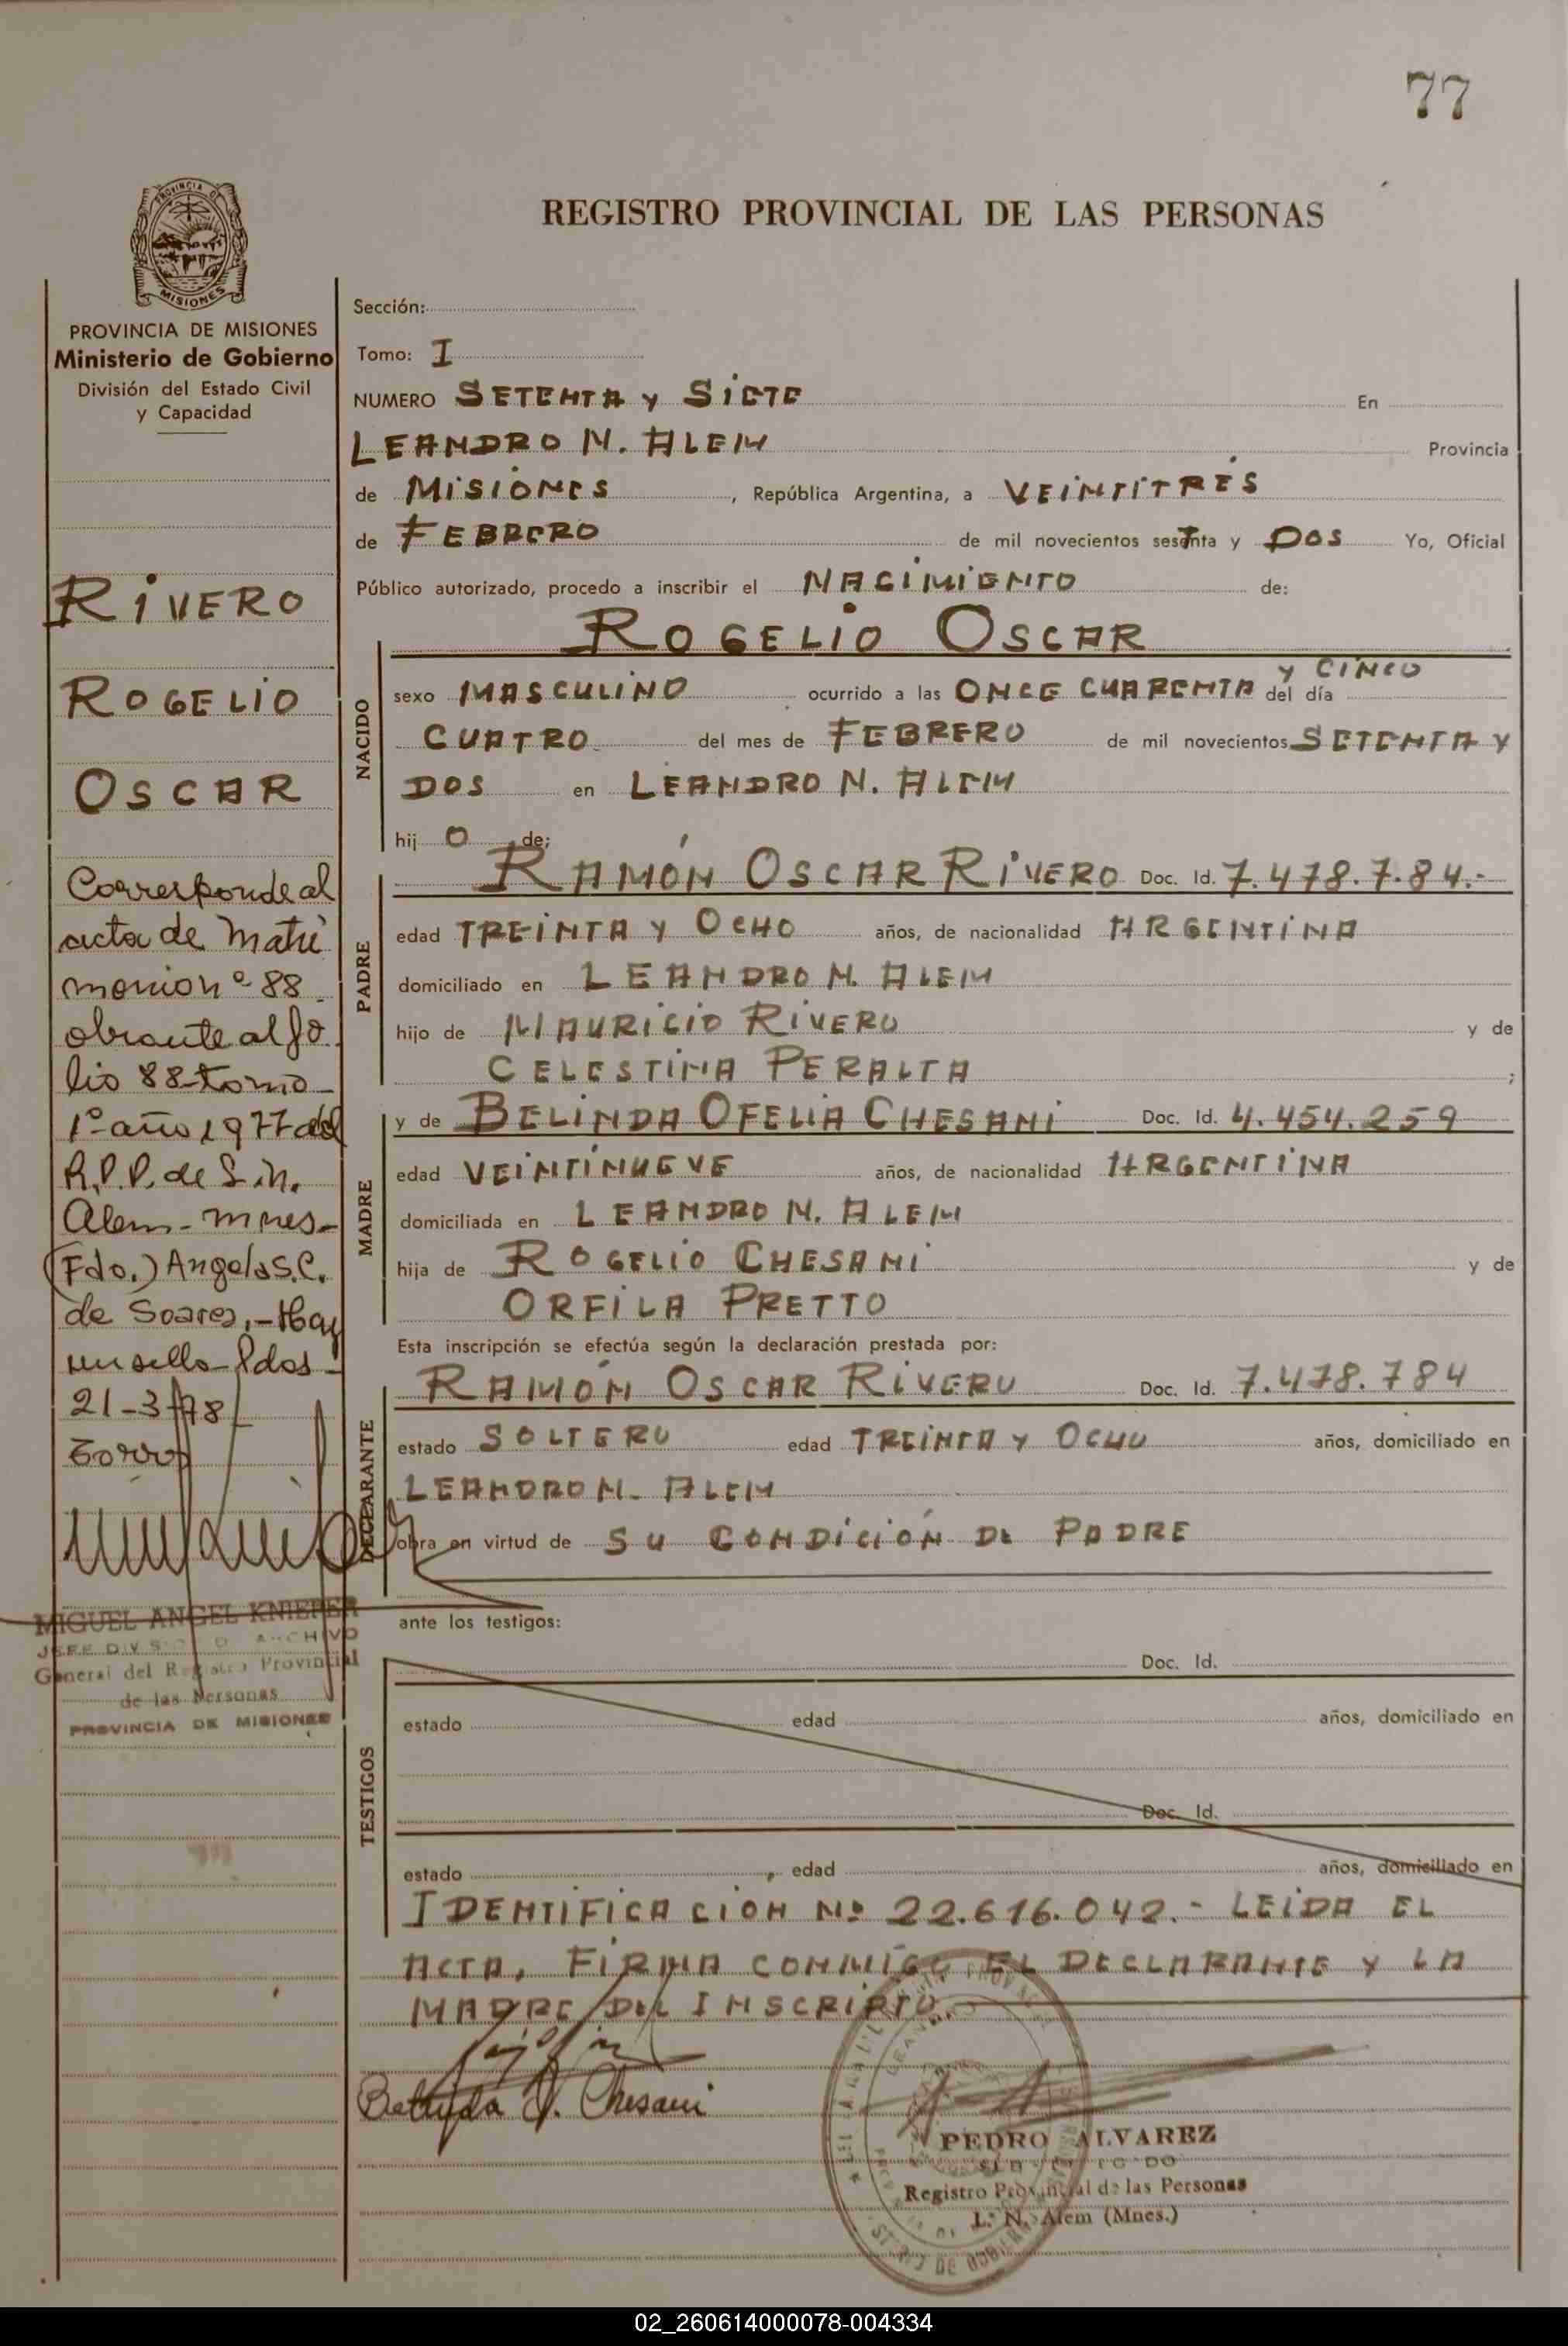 77
REGISTRO PROVINCIAL DE LAS PERSONAS
PROVINCIA DE MISIONES
MISIONES
PROVINCIA DE MISIONES
Ministerio de Gobierno
División del Estado Civil
y Capacidad
RIVERO
ROGELIO
OSCAR
Corresponde al
acta de Matri
monio nº 88
obrante al fo
lio 88 tomo
1º año 1977 del
R.P.P. de L.N.
Alem - Mnes -
(Fdo.) Angela S.C.
de Soarez, - Hay
un sello - Pdas -
21-3-78
MIGUEL ANGEL KNIEPER
JEFE DIVISION ARCHIVO
General del Registro Provincial
de las Personas
PROVINCIA DE MISIONES
Sección:
Tomo: I
NUMERO SETENTA y SIETE En
LEANDRO N. ALEM Provincia
de MISIONES, República Argentina, a VEINTITRÉS
de FEBRERO de mil novecientos setenta y DOS Yo, Oficial
Público autorizado, procedo a inscribir el NACIMIENTO de:
ROGELIO OSCAR
NACIDO
y CINCO
sexo MASCULINO ocurrido a las ONCE CUARENTA del día
CUATRO del mes de FEBRERO de mil novecientos SETENTA y
DOS en LEANDRO N. ALEM
hij O de:
PADRE
RAMÓN OSCAR RIVERO Doc. Id. 7.478.784.-
edad TREINTA y OCHO años, de nacionalidad ARGENTINA
domiciliado en LEANDRO N. ALEM
hijo de MAURICIO RIVERO y de
CELESTINA PERALTA ;
MADRE
y de BELINDA OFELIA CHESANI Doc. Id. 4.454.259
edad VEINTINUEVE años, de nacionalidad ARGENTINA
domiciliada en LEANDRO N. ALEM
hija de ROGELIO CHESANI y de
ORFILA PRETTO
Esta inscripción se efectúa según la declaración prestada por:
DECLARANTE
RAMÓN OSCAR RIVERO Doc. Id. 7.478.784
estado SOLTERO edad TREINTA y OCHO años, domiciliado en
LEANDRO N. ALEM
obra en virtud de SU CONDICIÓN DE PADRE
ante los testigos:
TESTIGOS
Doc. Id.
estado edad años, domiciliado en
Doc. Id.
estado , edad años, domiciliado en
IDENTIFICACIÓN Nº 22.616.042.- LEIDA EL
ACTA, FIRMA CONMIGO EL DECLARANTE y LA
MADRE DEL INSCRIPTO.
Belinda O. Chesani
PEDRO ALVAREZ
Registro Provincial de las Personas
L. N. Alem (Mnes.)
02_260614000078-004334